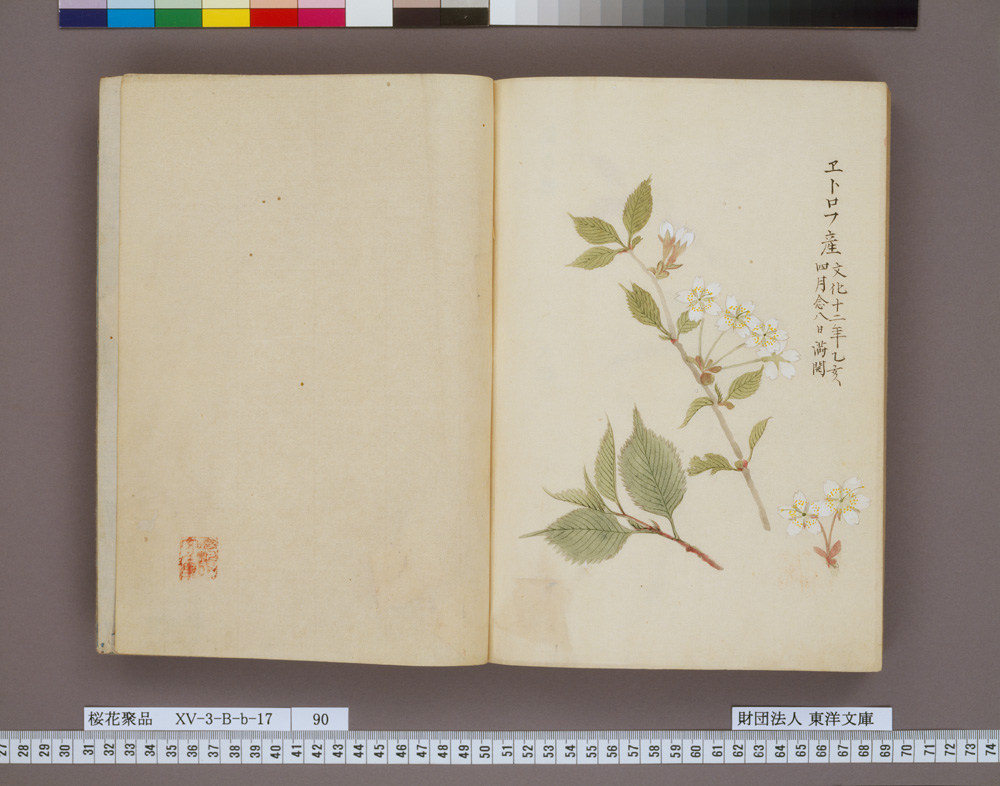 ヱトロフ産
文化十二年乙亥
四月念八日満開
桜花聚品 XV-3-B-b-17 90
財団法人 東洋文庫
27 28 29 30 31 32 33 34 35 36 37 38 39 40 41 42 43 44 45 46 47 48 49 50 51 52 53 54 55 56 57 58 59 60 61 62 63 64 65 66 67 68 69 70 71 72 73 74